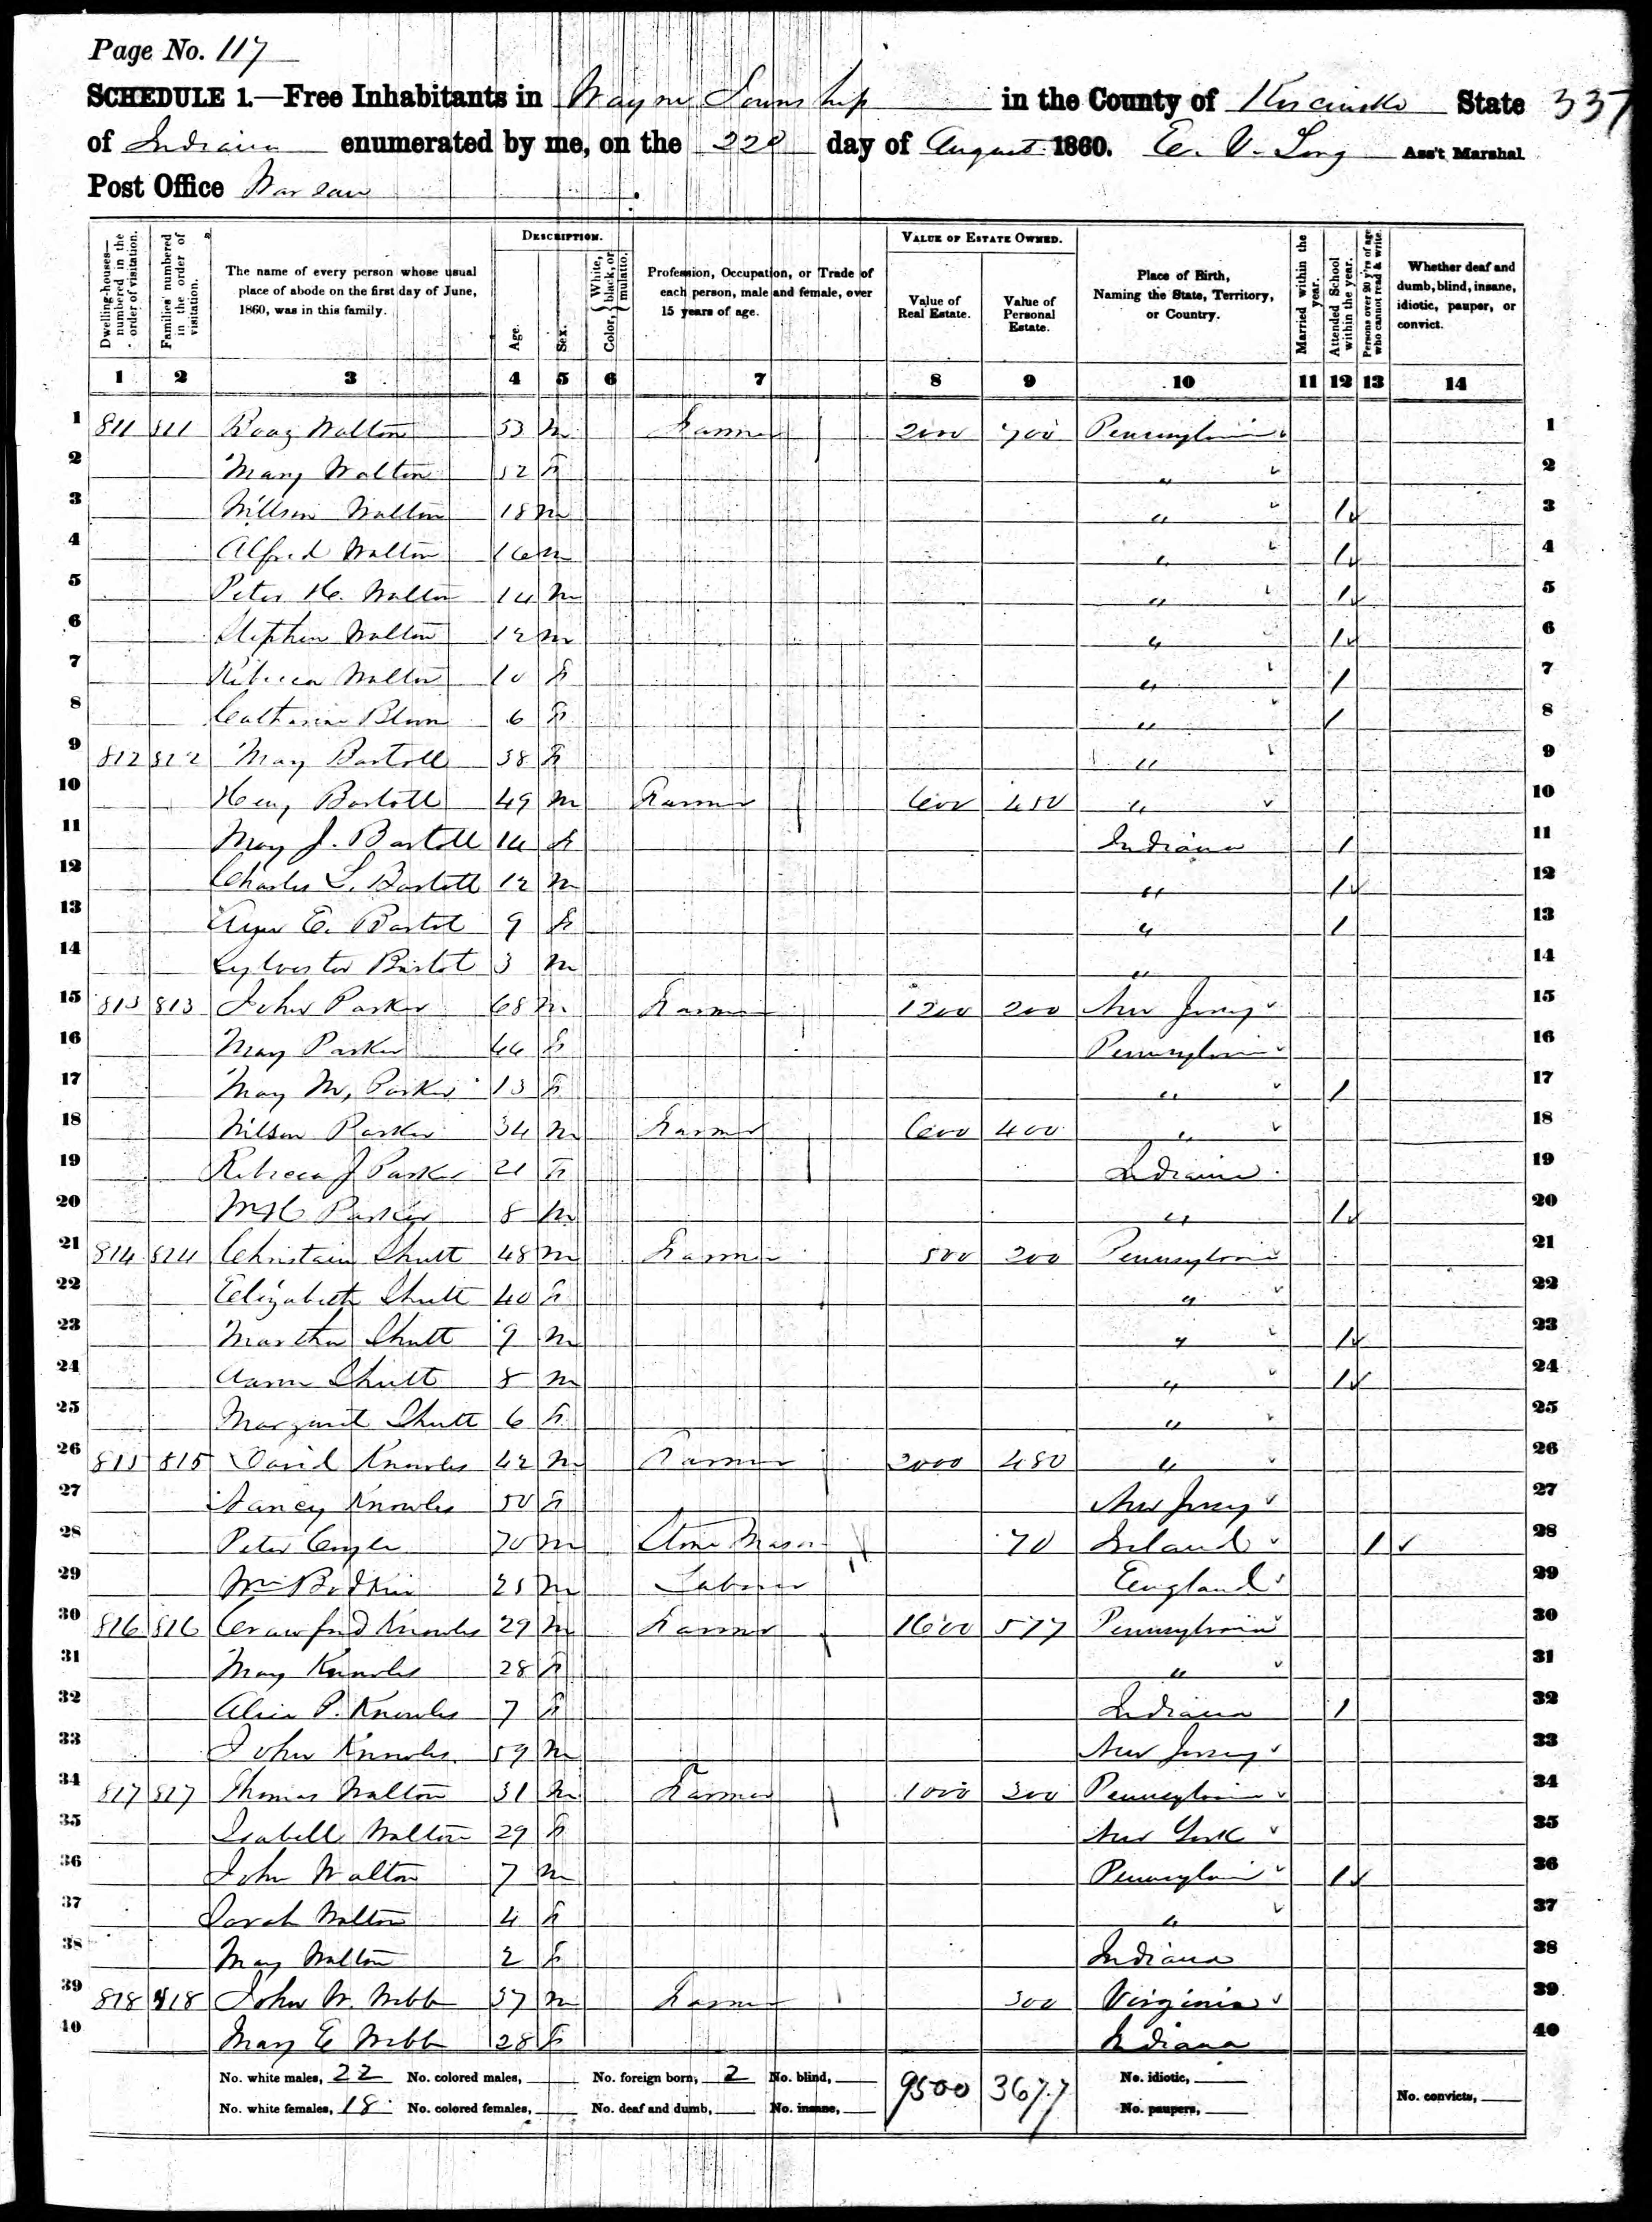 Page No. 117
SCHEDULE 1.—Free Inhabitants in Wayne Township in the County of Kosciusko State 337
of Indiana enumerated by me, on the 22d day of August 1860. E. V. Long Ass't Marshal
Post Office Warsaw
Dwelling-houses—numbered in the order of visitation.
Families numbered in the order of visitation.
The name of every person whose usual place of abode on the first day of June, 1860, was in this family.
DESCRIPTION.
Age.
Sex.
Color, { White, black, or mulatto.
Profession, Occupation, or Trade of each person, male and female, over 15 years of age.
VALUE OF ESTATE OWNED.
Value of Real Estate.
Value of Personal Estate.
Place of Birth, Naming the State, Territory, or Country.
Married within the year.
Attended School within the year.
Persons over 20 y'rs of age who cannot read & write.
Whether deaf and dumb, blind, insane, idiotic, pauper, or convict.
1 2 3 4 5 6 7 8 9 10 11 12 13 14
1 811 811 Boaz Walton 53 m Farmer 2000 700 Pennsylvania 1
2 Mary Walton 52 f " 2
3 Willson Walton 18 m " 1 3
4 Alfred Walton 16 m " 1 4
5 Peter H. Walton 14 m " 1 5
6 Stephen Walton 12 m " 1 6
7 Rebecca Walton 10 f " 1 7
8 Catharine Bloom 6 f " 1 8
9 812 812 Mary Bartoll 38 f " 9
10 Henry Bartoll 49 m Farmer 600 450 " 10
11 Mary J. Bartoll 14 f Indiana 1 11
12 Charles L. Bartoll 12 m " 1 12
13 E. Bartol 9 f " 1 13
14 Sylvester Bartol 3 m " 14
15 813 813 John Parker 68 m Farmer 1200 200 New Jersey 15
16 Mary Parker f Pennsylvania 16
17 Mary M, Parker 13 f " 1 17
18 Wilson Parker 34 m Farmer 600 400 " 18
19 Rebecca J Parker 21 f Indiana 19
20 Parker 8 m " 1 20
21 814 814 Christain Shutt 48 m Farmer 500 200 Pennsylvania 21
22 Elizabeth Shutt 40 f " 22
23 Martha Shutt 9 m " 1 23
24 Aaron Shutt 8 m " 1 24
25 Margaret Shutt 6 f " 25
26 815 815 David Knowles 42 m Farmer 2000 480 " 26
27 Nancy Knowles 50 f New Jersey 27
28 Peter 70 m Stone Mason 70 Ireland 1 28
29 Wm Bodkin 25 m Laborer England 29
30 816 816 Crawford Knowles 29 m Farmer 1600 577 Pennsylvania 30
31 Mary Knowles 28 f " 31
32 Alice P. Knowles 7 f Indiana 1 32
33 John Knowles 59 m New Jersey 33
34 817 817 Thomas Walton 31 m Farmer 1000 300 Pennsylvania 34
35 Isabell Walton 29 f New York 35
36 John Walton 7 m Pennsylvania 1 36
37 Sarah Walton 4 f " 37
38 Mary Walton 2 f Indiana 38
39 818 818 John W. Webb 37 m Farmer 300 Virginia 39
40 Mary E Webb 28 f Indiana 40
No. white males, 22 No. colored males, No. foreign born, 2 No. blind, 9500 3677 No. idiotic,
No. white females, 18 No. colored females, No. deaf and dumb, No. insane, No. paupers, No. convicts,